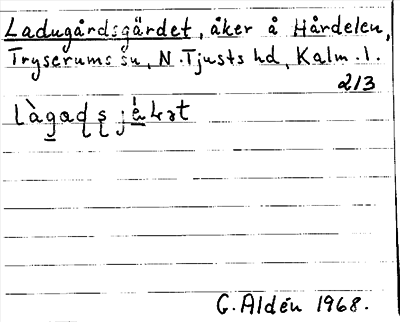 Ladugårdsgärdet, åker å Hårdelen,
Tryserums sn, N. Tjusts hd, Kalm. l.
213
G. Aldén 1968.